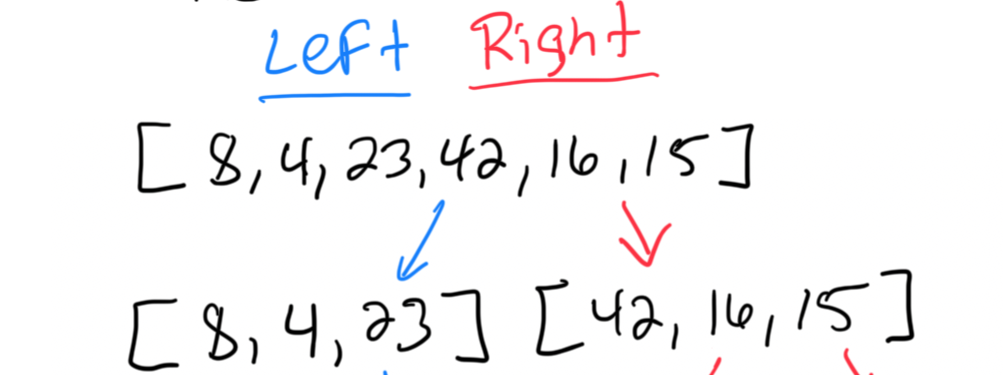 Left Right
[ 8, 4, 23, 42, 16, 15 ]
[ 8, 4, 23 ] [ 42, 16, 15 ]